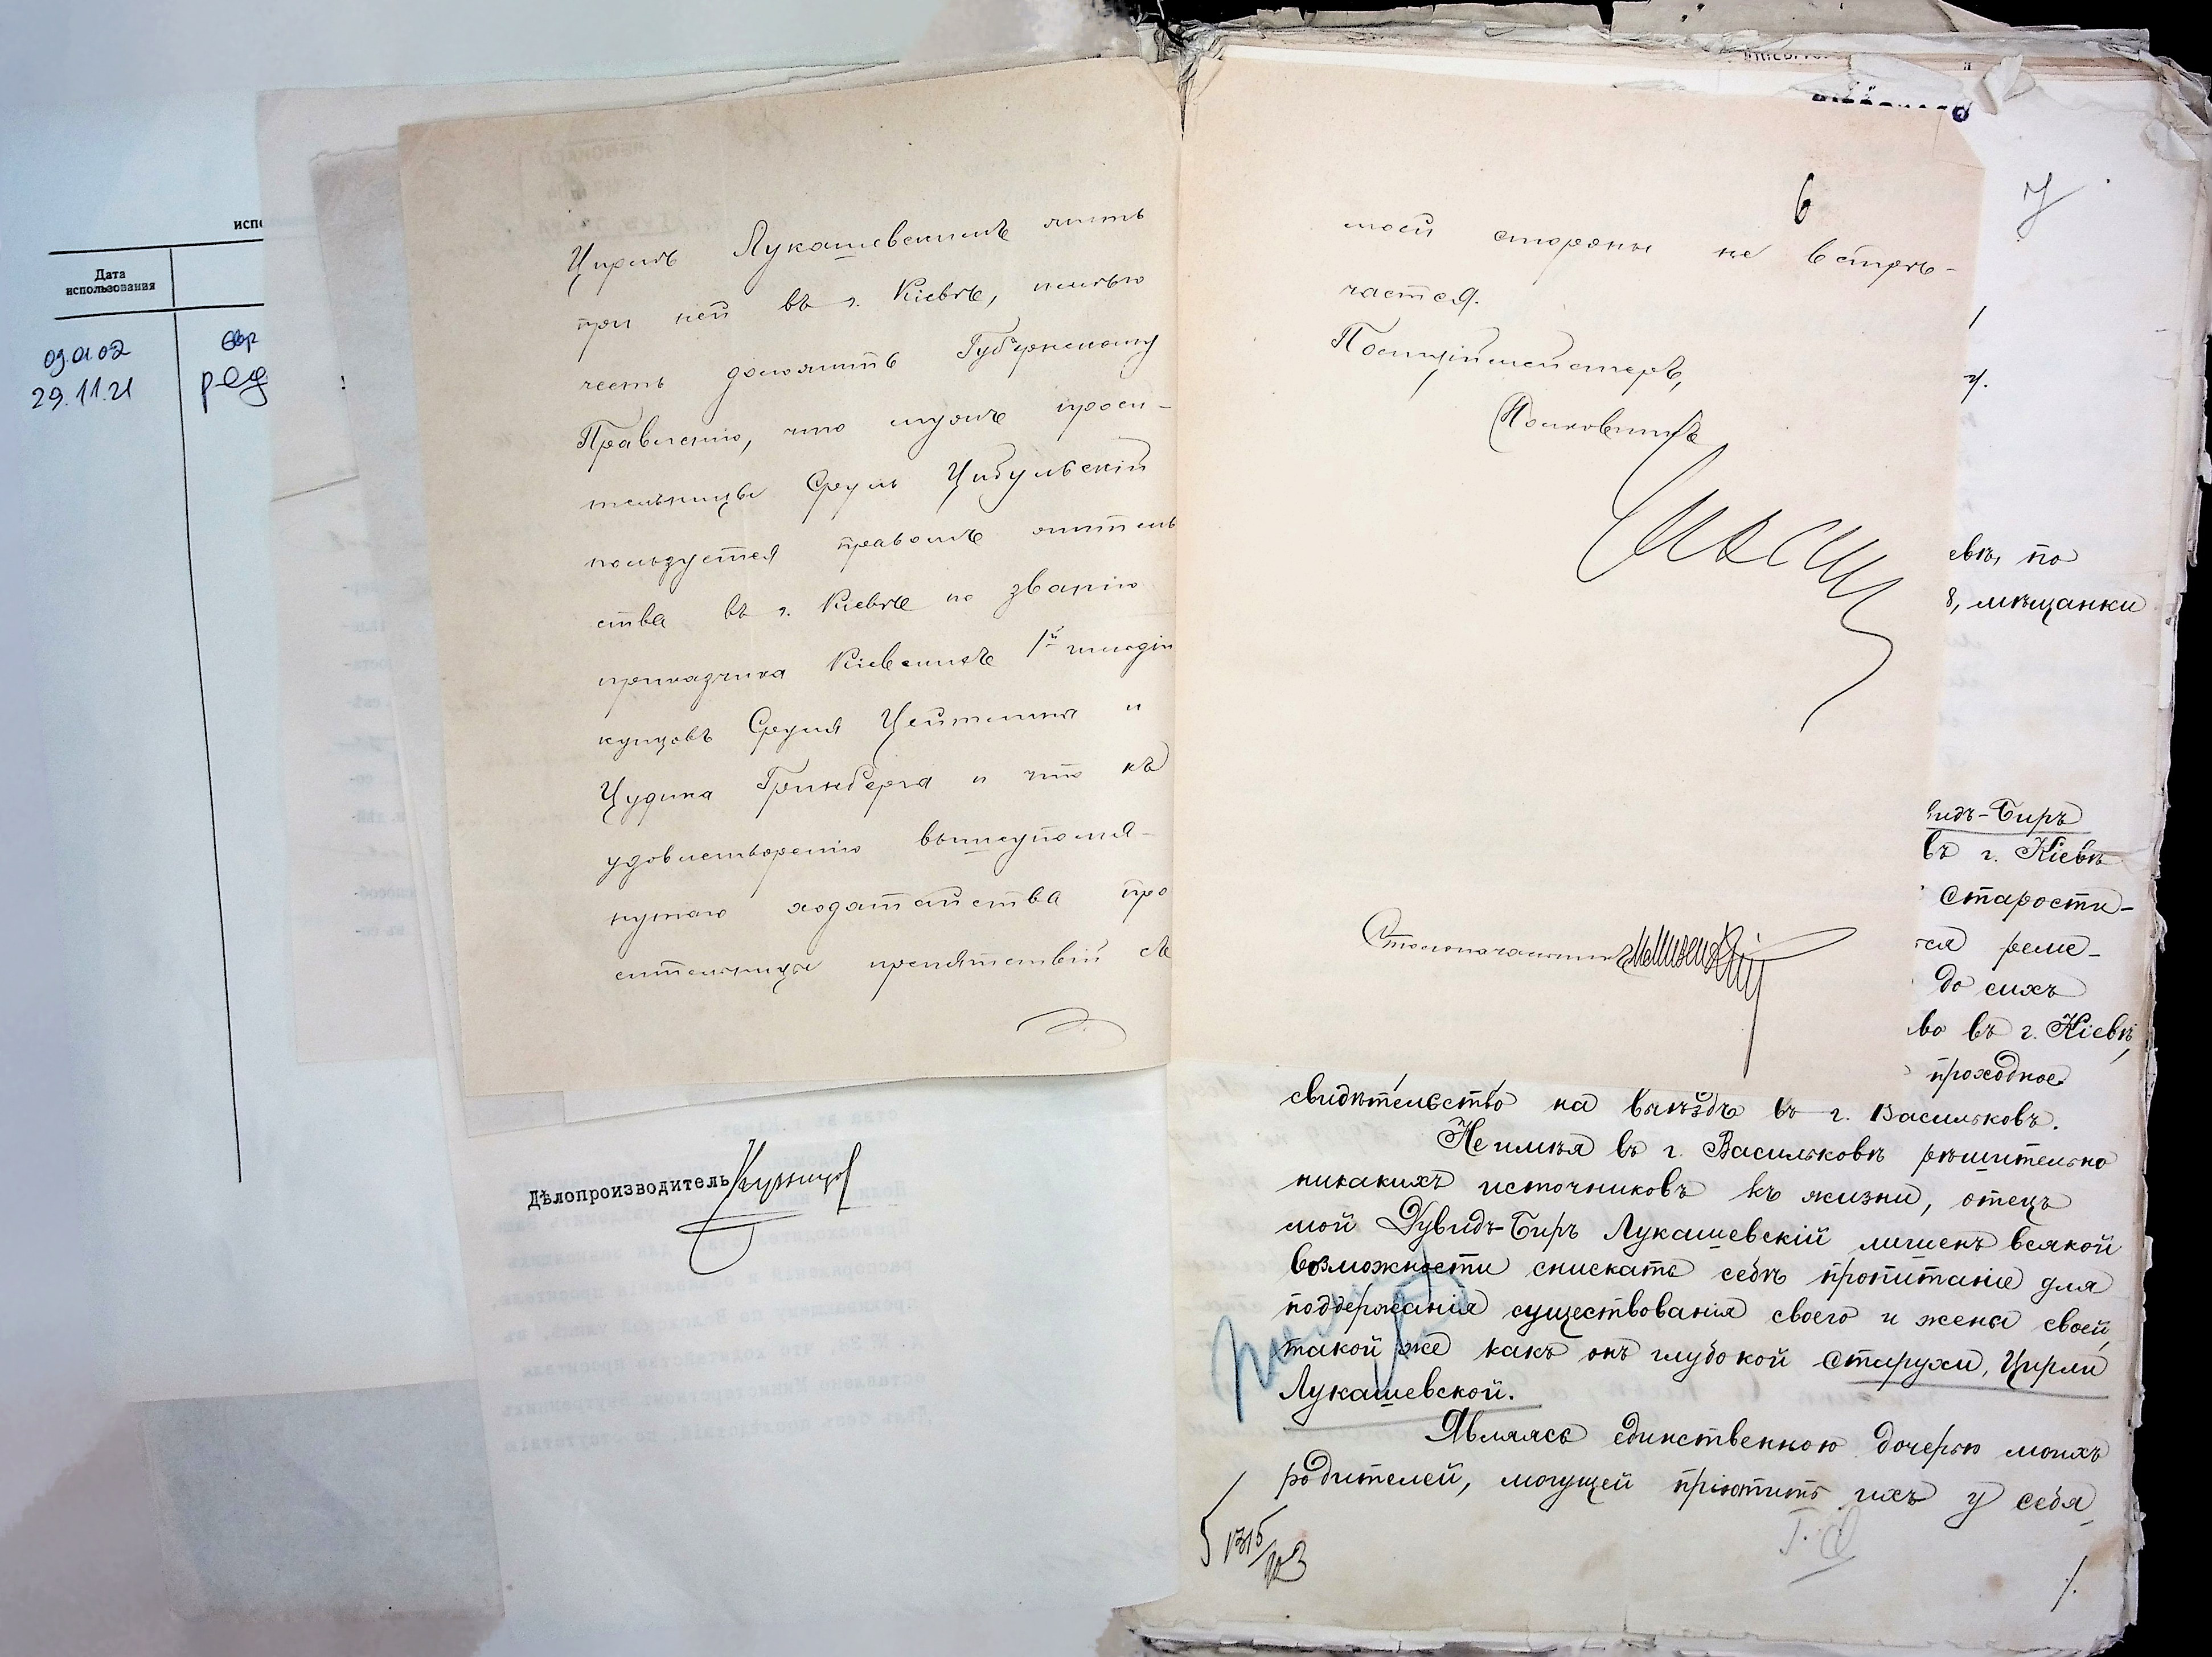 Дата
использования
09.01.02
29.11.21
Цирлѣ Лукашевскимъ жить
при ней въ г. Кіевѣ, имѣю
честь доложить Губернскому
Правленію, что мужъ проси-
тельницы Сруль Цибульскій
пользуется правомъ житель
ства въ г. Кіевѣ по званію
приказчика Кіевскихъ 1й гильдіи
купцовъ Сруля Цейтлина и
Иудика Гринберга и что къ
удовлетворенію вышеупомя-
нутаго ходатайства про
сительницы препятствій съ
Дѣлопроизводитель
6
моей стороны не встрѣ-
чается.
Полиціймейстеръ,
Полковникъ
Столоначальникъ
7
евѣ, по
8, мѣщанки
видъ-Биръ
въ г. Кіевѣ
старости-
тся реме-
до сихъ
во въ г. Кіевѣ,
проходное
свидѣтельство на выѣздъ въ г. Васильковъ.
Не имѣя въ г. Васильковѣ рѣшительно
никакихъ источниковъ къ жизни, отецъ
мой Дувидъ-Биръ Лукашевскій лишенъ всякой
возможности снискать себѣ пропитаніе для
поддержанія существованія своего и жены своей,
такой же какъ онъ глубокой старухи, Цирли
Лукашевской.
Являясь единственною дочерью моихъ
родителей, могущей пріютить ихъ у себя,